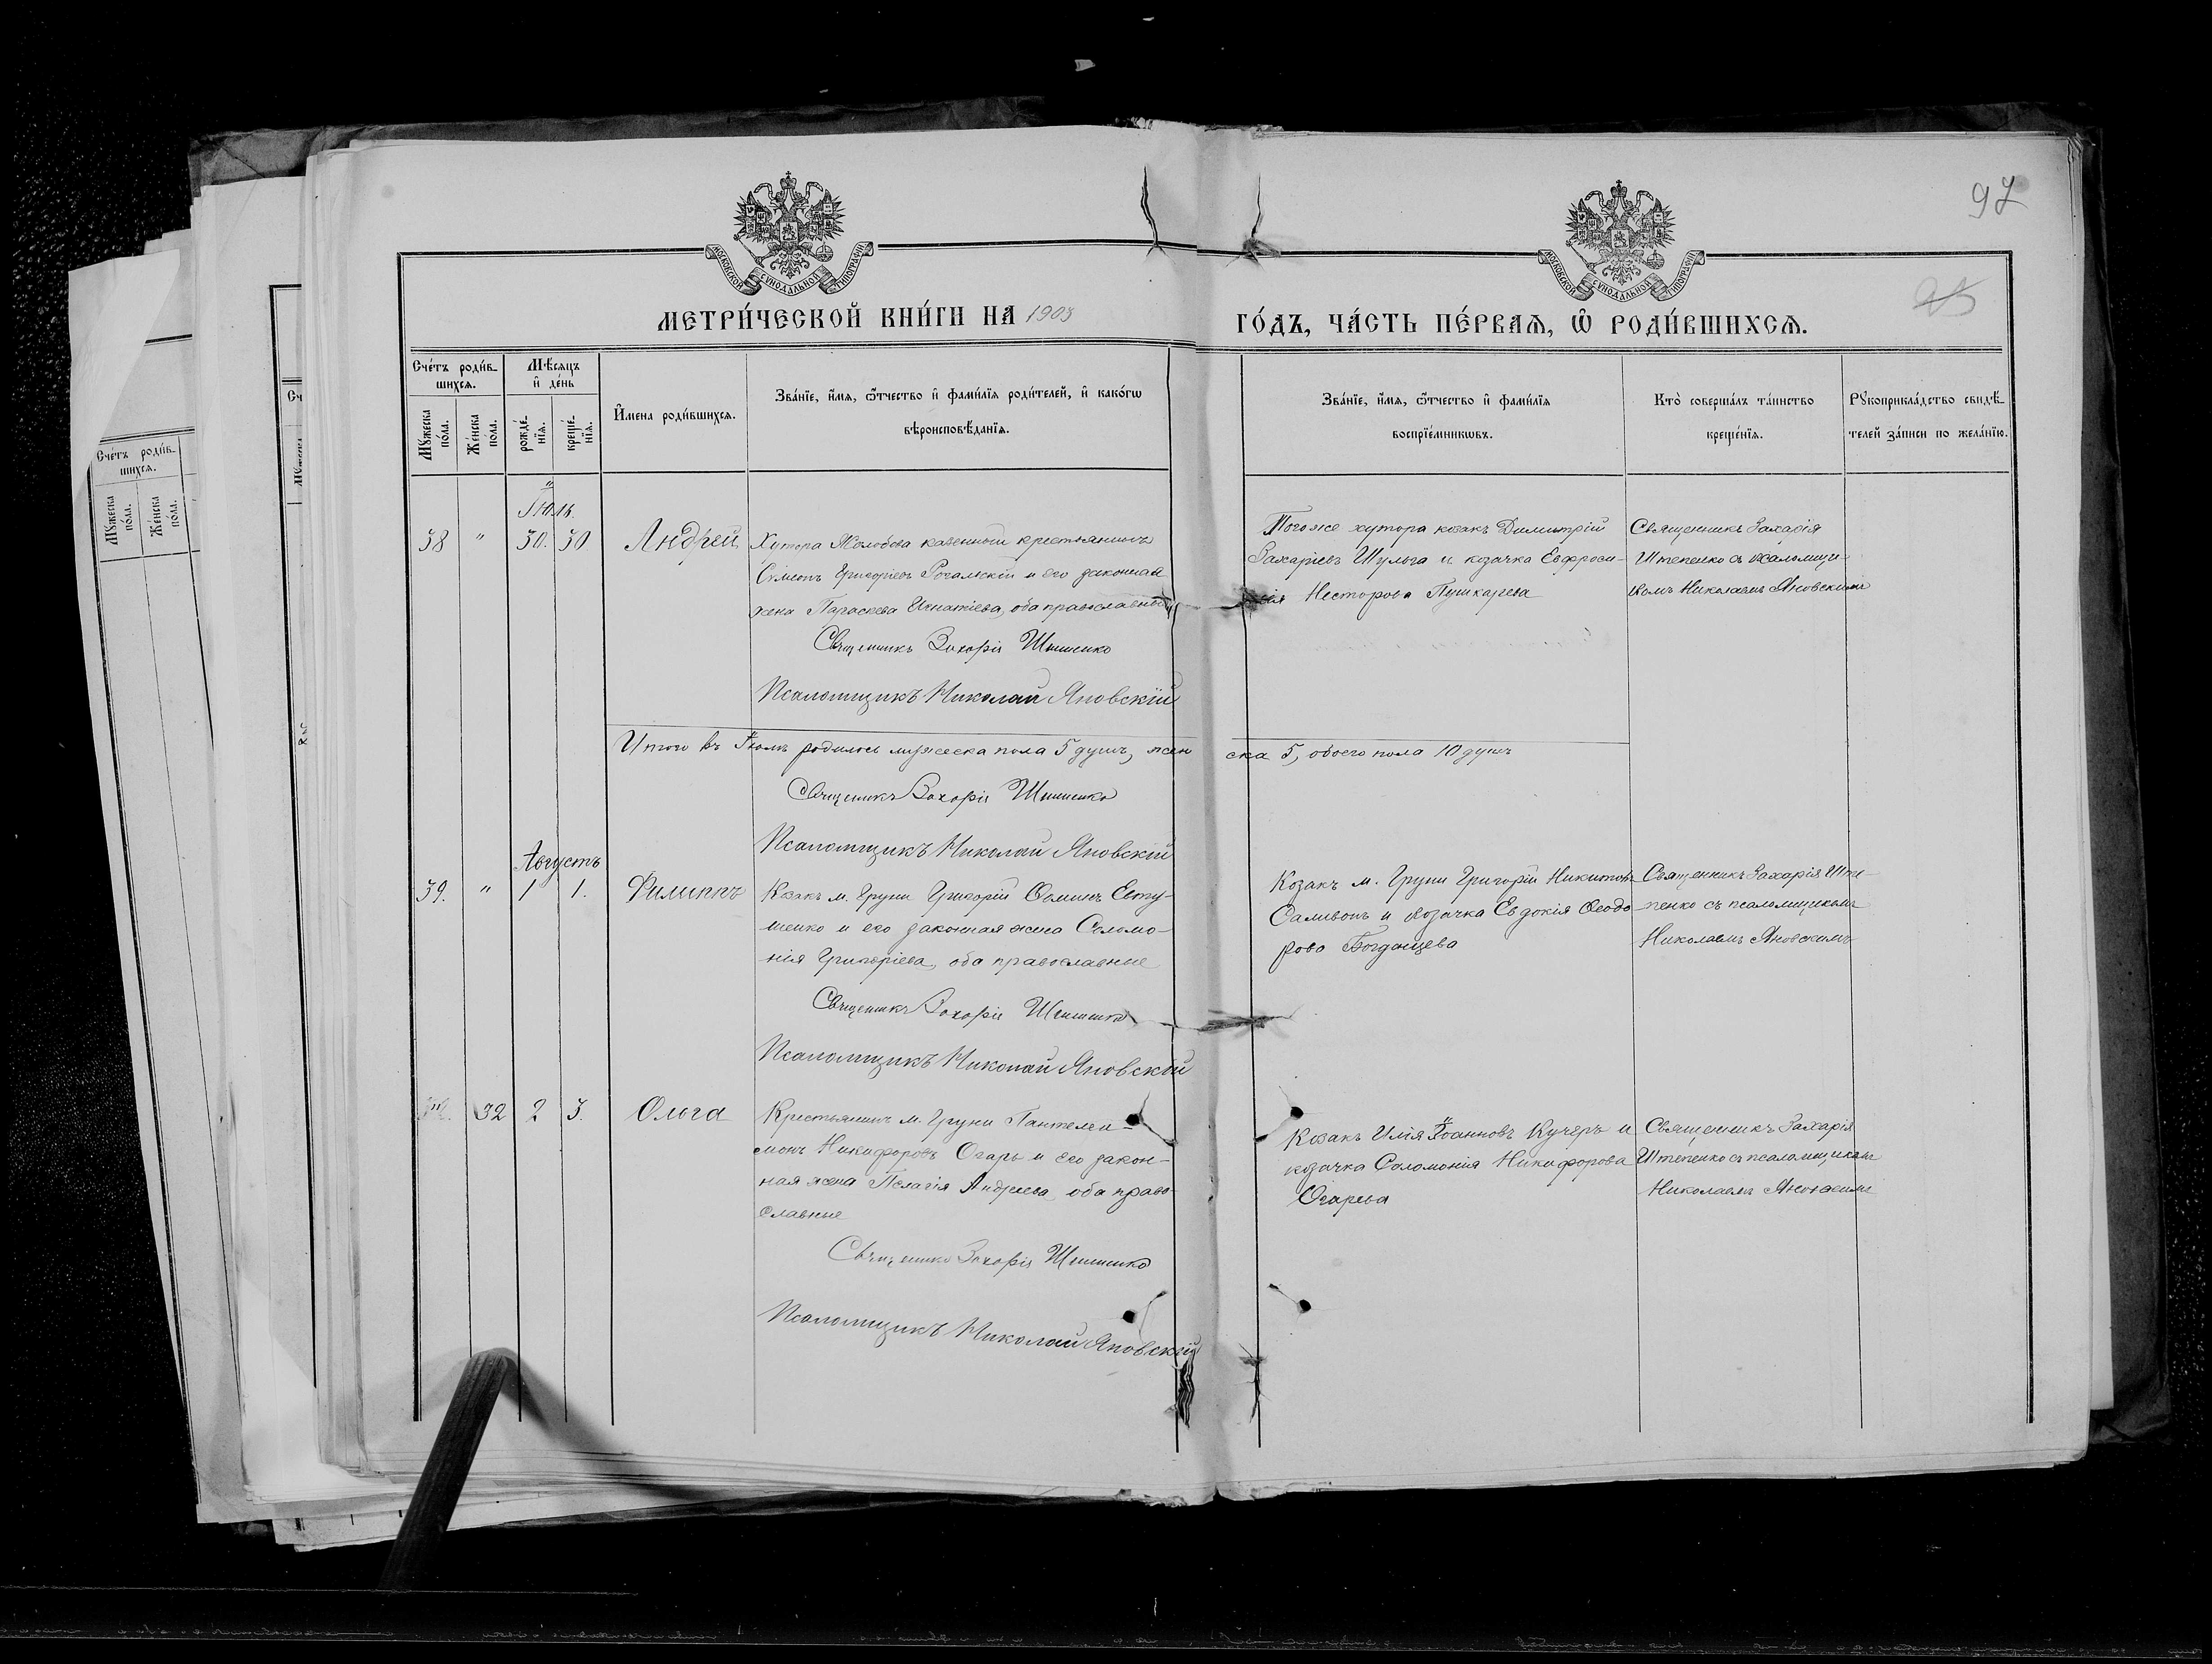 97
МОСКОВСКОЙ СѴНОДАЛЬНОЙ ТИПОГРАФІИ
МОСКОВСКОЙ СѴНОДАЛЬНОЙ ТИПОГРАФІИ
МЕТРИ́ЧЕСКОЙ КНИ́ГИ НА 1903
ГО́ДЪ, ЧА́СТЬ ПЕ́РВАѦ, Ѽ РОДИ́ВШИХСѦ.
Сче́тъ роди́в-
шихсѧ.
Мꙋжеска
по́ла.
Же́нска
по́ла.
Мѣ́сѧцъ
и҆ де́нь
рожде́-
нїѧ.
креще́-
нїѧ.
И҆мена роди́вшихсѧ.
Зва́нїе, и҆́мѧ, ѻ҆́тчество и҆ фами́лїѧ роди́телей, и҆ како́гѡ
вѣроисповѣ́данїѧ.
Зва́нїе, и҆́мѧ, ѻ҆́тчество и҆ фами́лїѧ
воспрїе́мникѡвъ.
Кто̀ соверша́лъ та́инство
креще́нїѧ.
Рꙋкоприкла́дство свидѣ́-
телей за́писи по жела́нїю.
Іюль.
38 " 30. 30 Андрей
Хутора Жолобова казенный крестьянинъ
Сѵмеонъ Григоріевъ Рогальскій и его законная
жена Параскева Игнатіева, оба православные
Священникъ Захарія Штепенко
Псаломщикъ Николай Яновскій
Того же хутора козакъ Димитрій
Захаріевъ Шульга и козачка Евфроси-
нія Несторова Пушкарева
Священникъ Захарія
Штепенко съ псаломщи-
комъ Николаемъ Яновскимъ
Итого въ Іюль родилось мужеска пола 5 душъ, жен
ска 5, обоего пола 10 душъ
Священникъ Захарія Штепенко
Псаломщикъ Николай Яновскій
Августъ
39. " 1 1. Филиппъ
Козакъ м. Груни Григорій Ѳоминъ Евту-
шенко и его законная жена Соломо-
нія Григоріева, оба православные
Священникъ Захарія Штепенко
Псаломщикъ Николай Яновскій
Козакъ м. Груни Григорій Никитовъ
Саливонъ и козачка Евдокія Ѳеодо-
рова Богданцева
Священникъ Захарія Ште-
пенко съ псаломщикомъ
Николаемъ Яновскимъ
32 2 3. Ольга
Крестьянинъ м. Груни Пантелеи-
монъ Никифоровъ Огарь и его закон-
ная жена Пелагія Андреева оба право-
славные
Священникъ Захарія Штепенко
Псаломщикъ Николай Яновскій
Козакъ Илія Іоанновъ Кучеръ и
козачка Соломонія Никифорова
Огарева
Священникъ Захарія
Штепенко съ псаломщикомъ
Николаемъ Яновскимъ
Сче́тъ роди́в-
шихсѧ.
Мꙋжеска
по́ла.
Же́нска
по́ла.